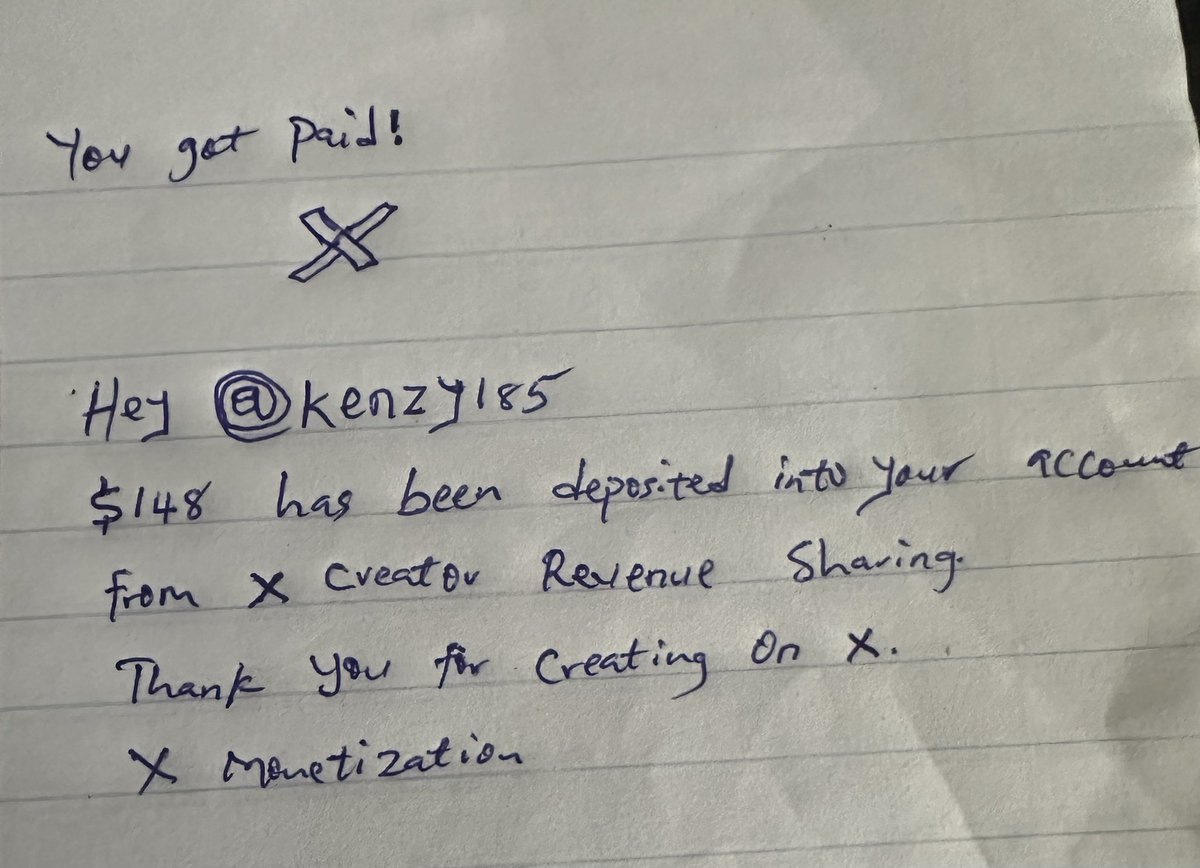 You got paid!
X
Hey @kenzy185
$148 has been deposited into your account
from X Creator Revenue Sharing.
Thank you for Creating On X.
X Monetization